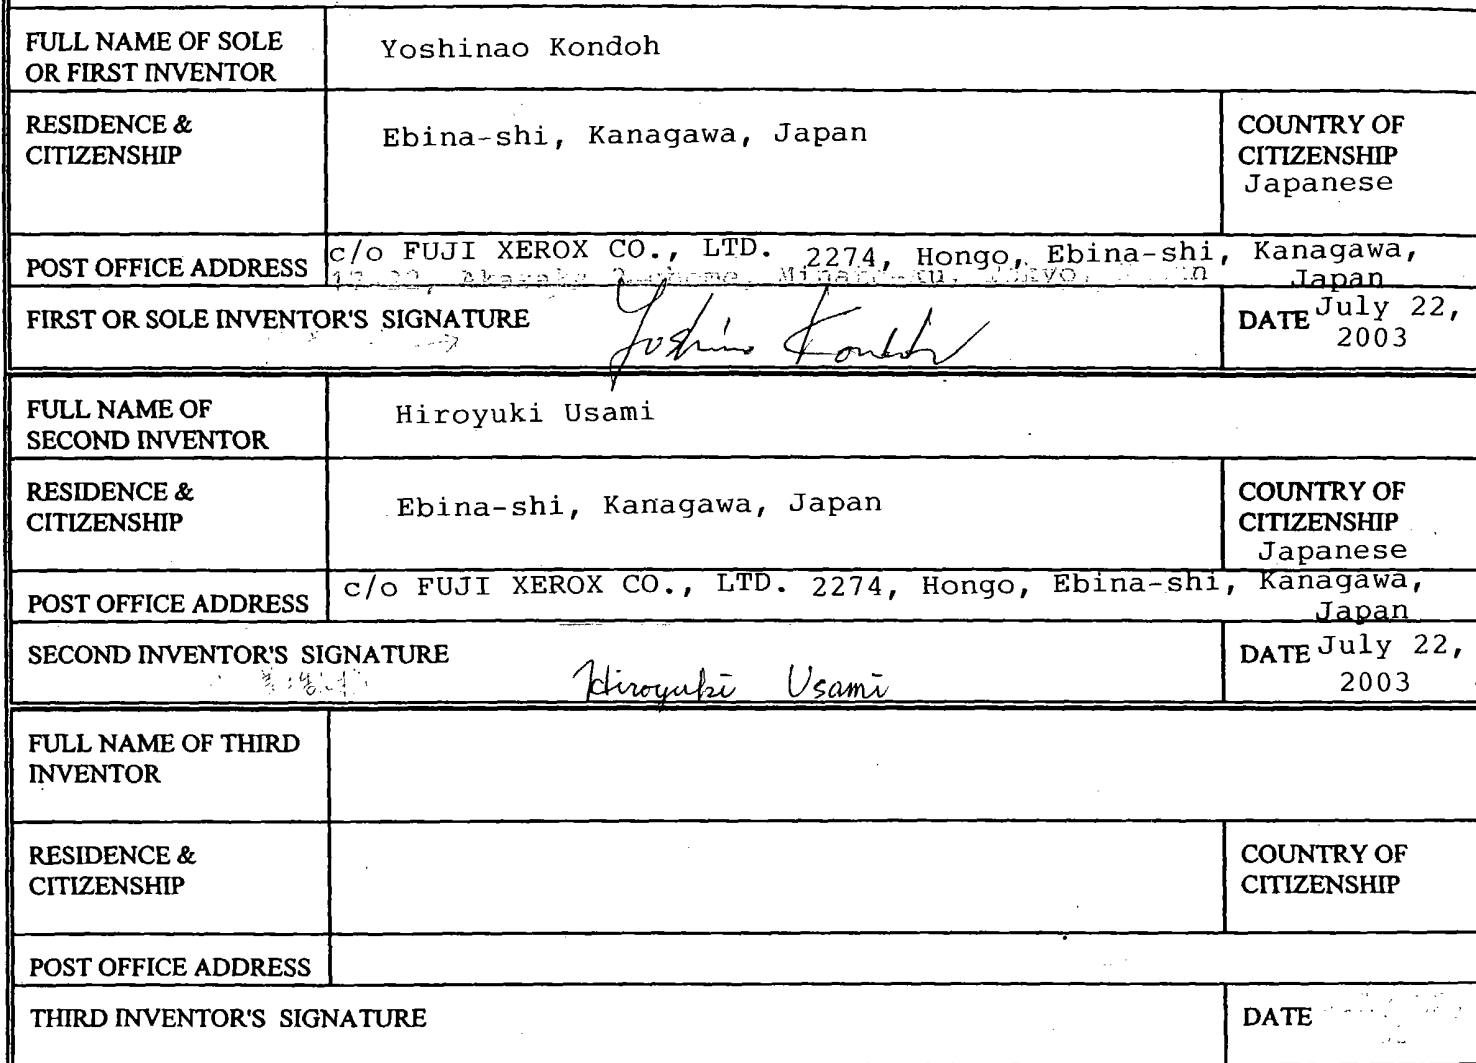 FULL NAME OF SOLE
OR FIRST INVENTOR
Yoshinao Kondoh
RESIDENCE &
CITIZENSHIP
Ebina-shi, Kanagawa, Japan
COUNTRY OF
CITIZENSHIP
Japanese
POST OFFICE ADDRESS
c/o FUJI XEROX CO., LTD. 2274, Hongo, Ebina-shi, Kanagawa,
Japan
FIRST OR SOLE INVENTOR'S SIGNATURE
Yoshinao Kondoh
DATE July 22,
2003
FULL NAME OF
SECOND INVENTOR
Hiroyuki Usami
RESIDENCE &
CITIZENSHIP
Ebina-shi, Kanagawa, Japan
COUNTRY OF
CITIZENSHIP
Japanese
POST OFFICE ADDRESS
c/o FUJI XEROX CO., LTD. 2274, Hongo, Ebina-shi, Kanagawa,
Japan
SECOND INVENTOR'S SIGNATURE
Hiroyuki Usami
DATE July 22,
2003
FULL NAME OF THIRD
INVENTOR
RESIDENCE &
CITIZENSHIP
COUNTRY OF
CITIZENSHIP
POST OFFICE ADDRESS
THIRD INVENTOR'S SIGNATURE
DATE